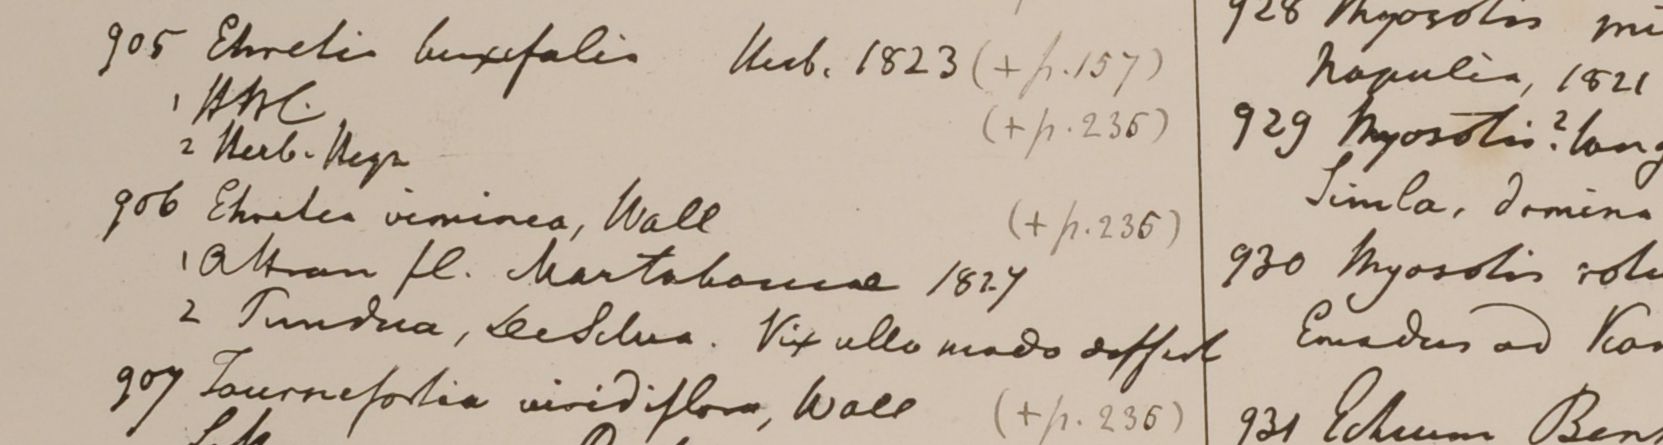 905 Ehretia buxifolia Herb. 1823 (+ p. 157)
1 HBC. (+ p. 236)
2 Herb. Heyn
906 Ehretia viminea, Wall (+ p. 236)
1 Attran fl. Martabaniae 1827
2 Tundua, De Silva. Vix ullo modo differt
907 Tournefortia viridiflora, Wall (+ p. 236)
928 Myosotis
Napulia, 1821
929 Myosotis? long
Simla,
930 Myosotis rotu
Emodus ad
931 Echium Ben